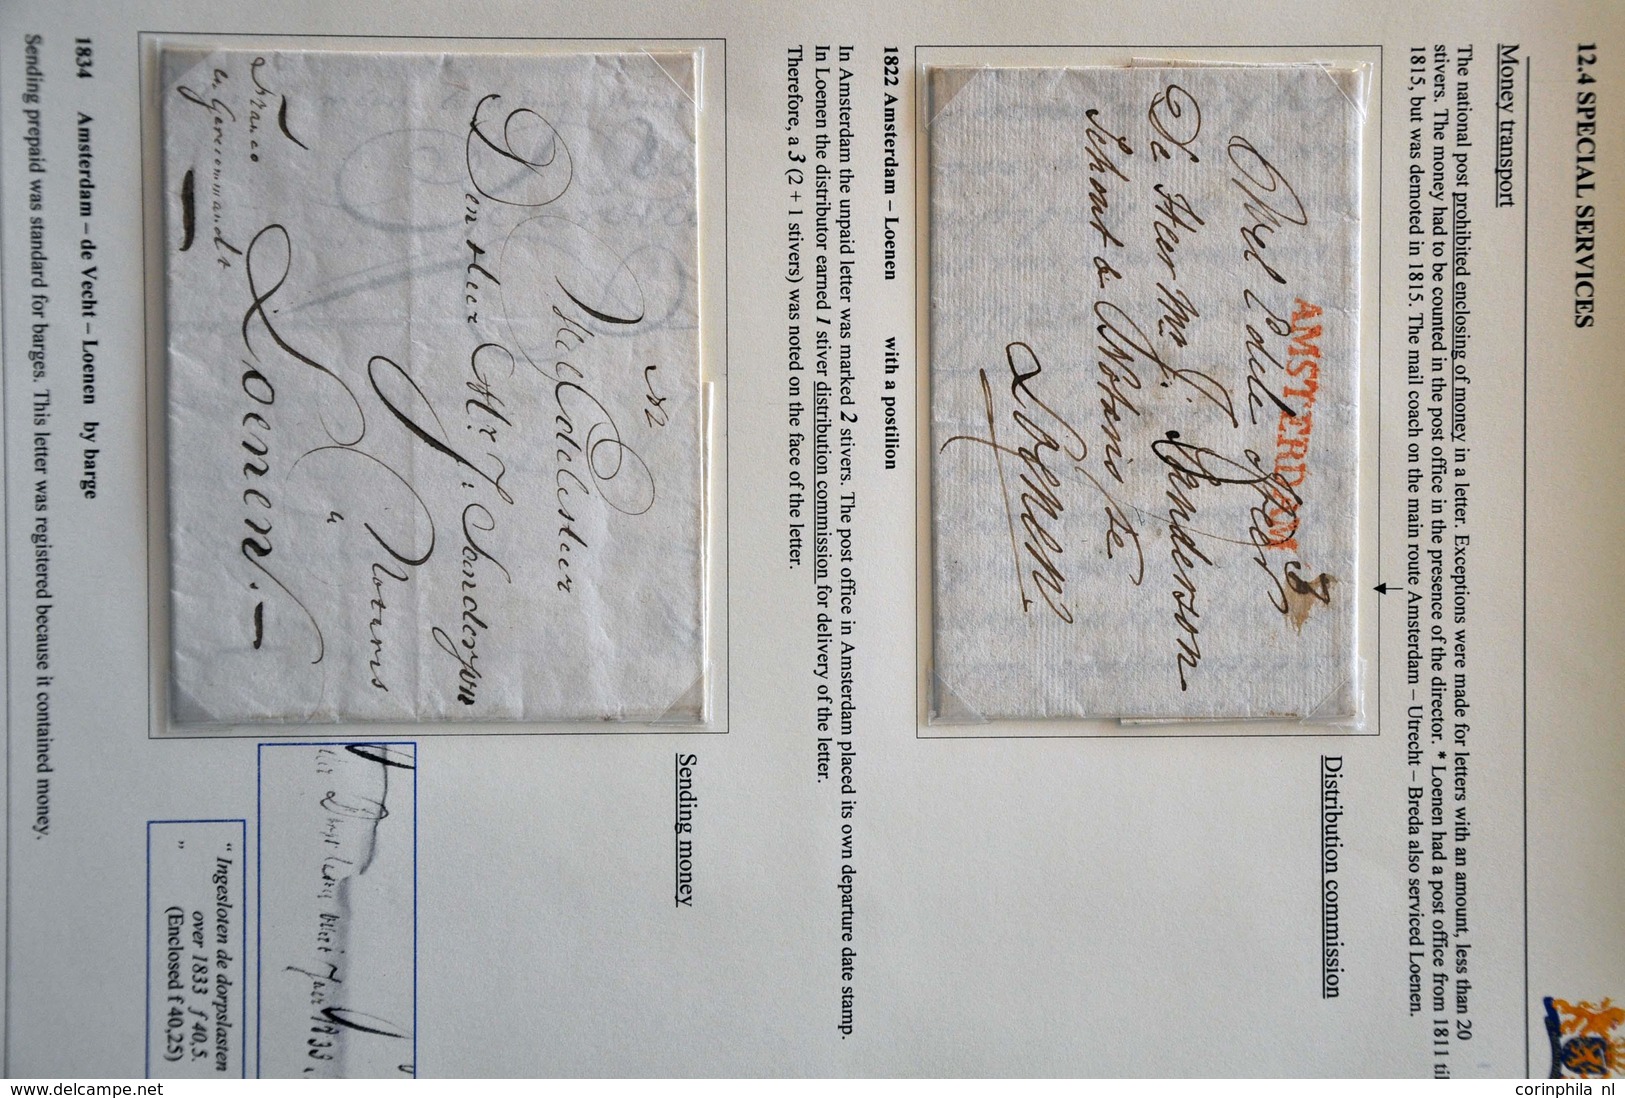 12.4 SPECIAL SERVICES
Money transport
The national post prohibited enclosing of money in a letter. Exceptions were made for letters with an amount, less than 20
stivers. The money had to be counted in the post office in the presence of the director. * Loenen had a post office from 1811 til
1815, but was demoted in 1815. The mail coach on the main route Amsterdam – Utrecht – Breda also serviced Loenen.
AMSTERDAM 3
Wel Edele
De Heer Mr. J. Sanderson
Loenen
Distribution commission
1822 Amsterdam – Loenen with a postilion
In Amsterdam the unpaid letter was marked 2 stivers. The post office in Amsterdam placed its own departure date stamp.
In Loenen the distributor earned 1 stiver distribution commission for delivery of the letter.
Therefore, a 3 (2 + 1 stivers) was noted on the face of the letter.
N2
Den Heer Mr. J. Sanderson
Notaris
a
Loenen.
Franco
en Gerecommandt
Sending money
1833
" Ingesloten de dorpslasten
over 1833 ƒ 40,5.
" (Enclosed f 40,25)
1834 Amsterdam – de Vecht – Loenen by barge
Sending prepaid was standard for barges. This letter was registered because it contained money.
www.delcampe.net
corinphila nl